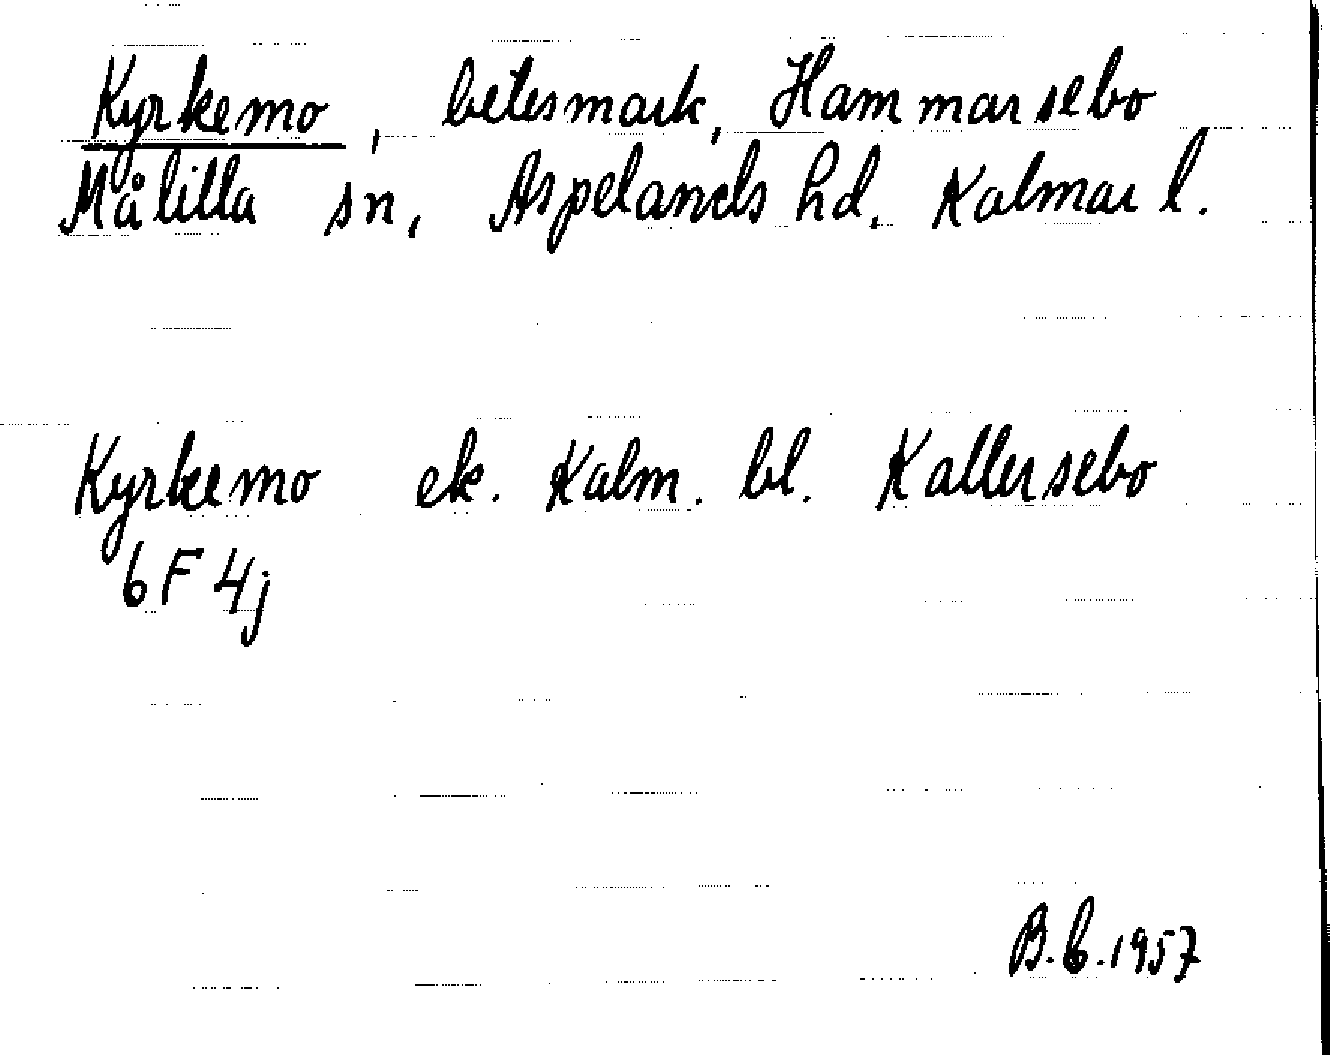 Kyrkemo, betesmark, Hammarsebo
Målilla sn, Aspelands hd, Kalmar l.
Kyrkemo ek. Kalm. bl. Kallersebo
6F 4j
B.b. 1957